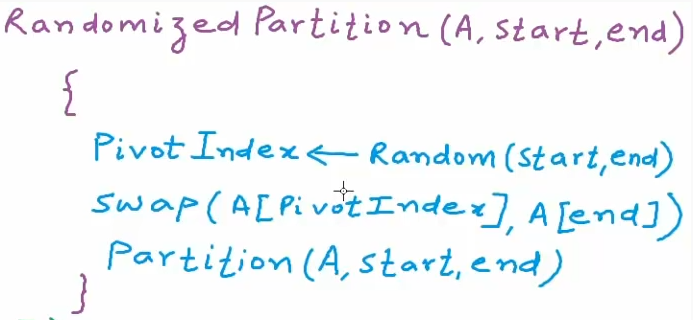 Randomized Partition (A, start, end)
{
Pivot Index ← Random (start, end)
swap (A[PivotIndex], A[end])
Partition (A, start, end)
}